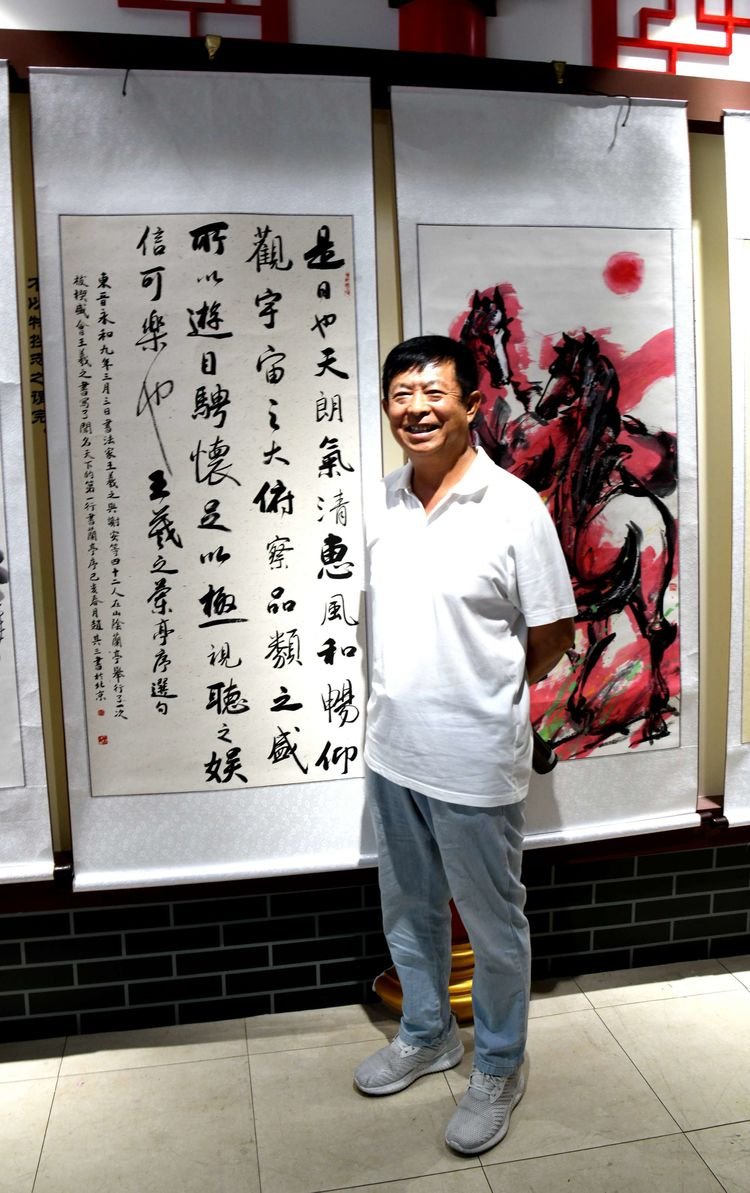 是日也天朗氣清惠風和暢仰
觀宇宙之大俯察品類之盛
所以遊目騁懷足以極視聽之娛
信可樂也 王羲之蘭亭序選句
東晋永和九年三月三日書法家王羲之與謝安等四十二人在山陰蘭亭舉行了一次
祓禊盛會王羲之書寫了聞名天下的第一行書蘭亭序己亥春月趙其三書於北京